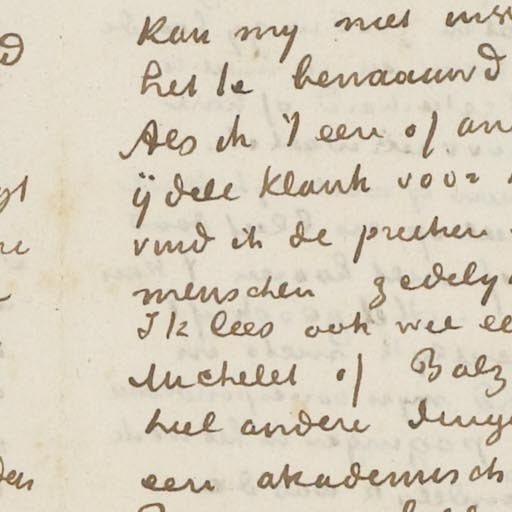 kan my niet
het te benaauwd
Als ik 't een of
ijdele klank voor
vind ik de preeken
menschen zedelyk
Ik lees ook wel
Michelet of Balz
heel andere dinge
een akademisch